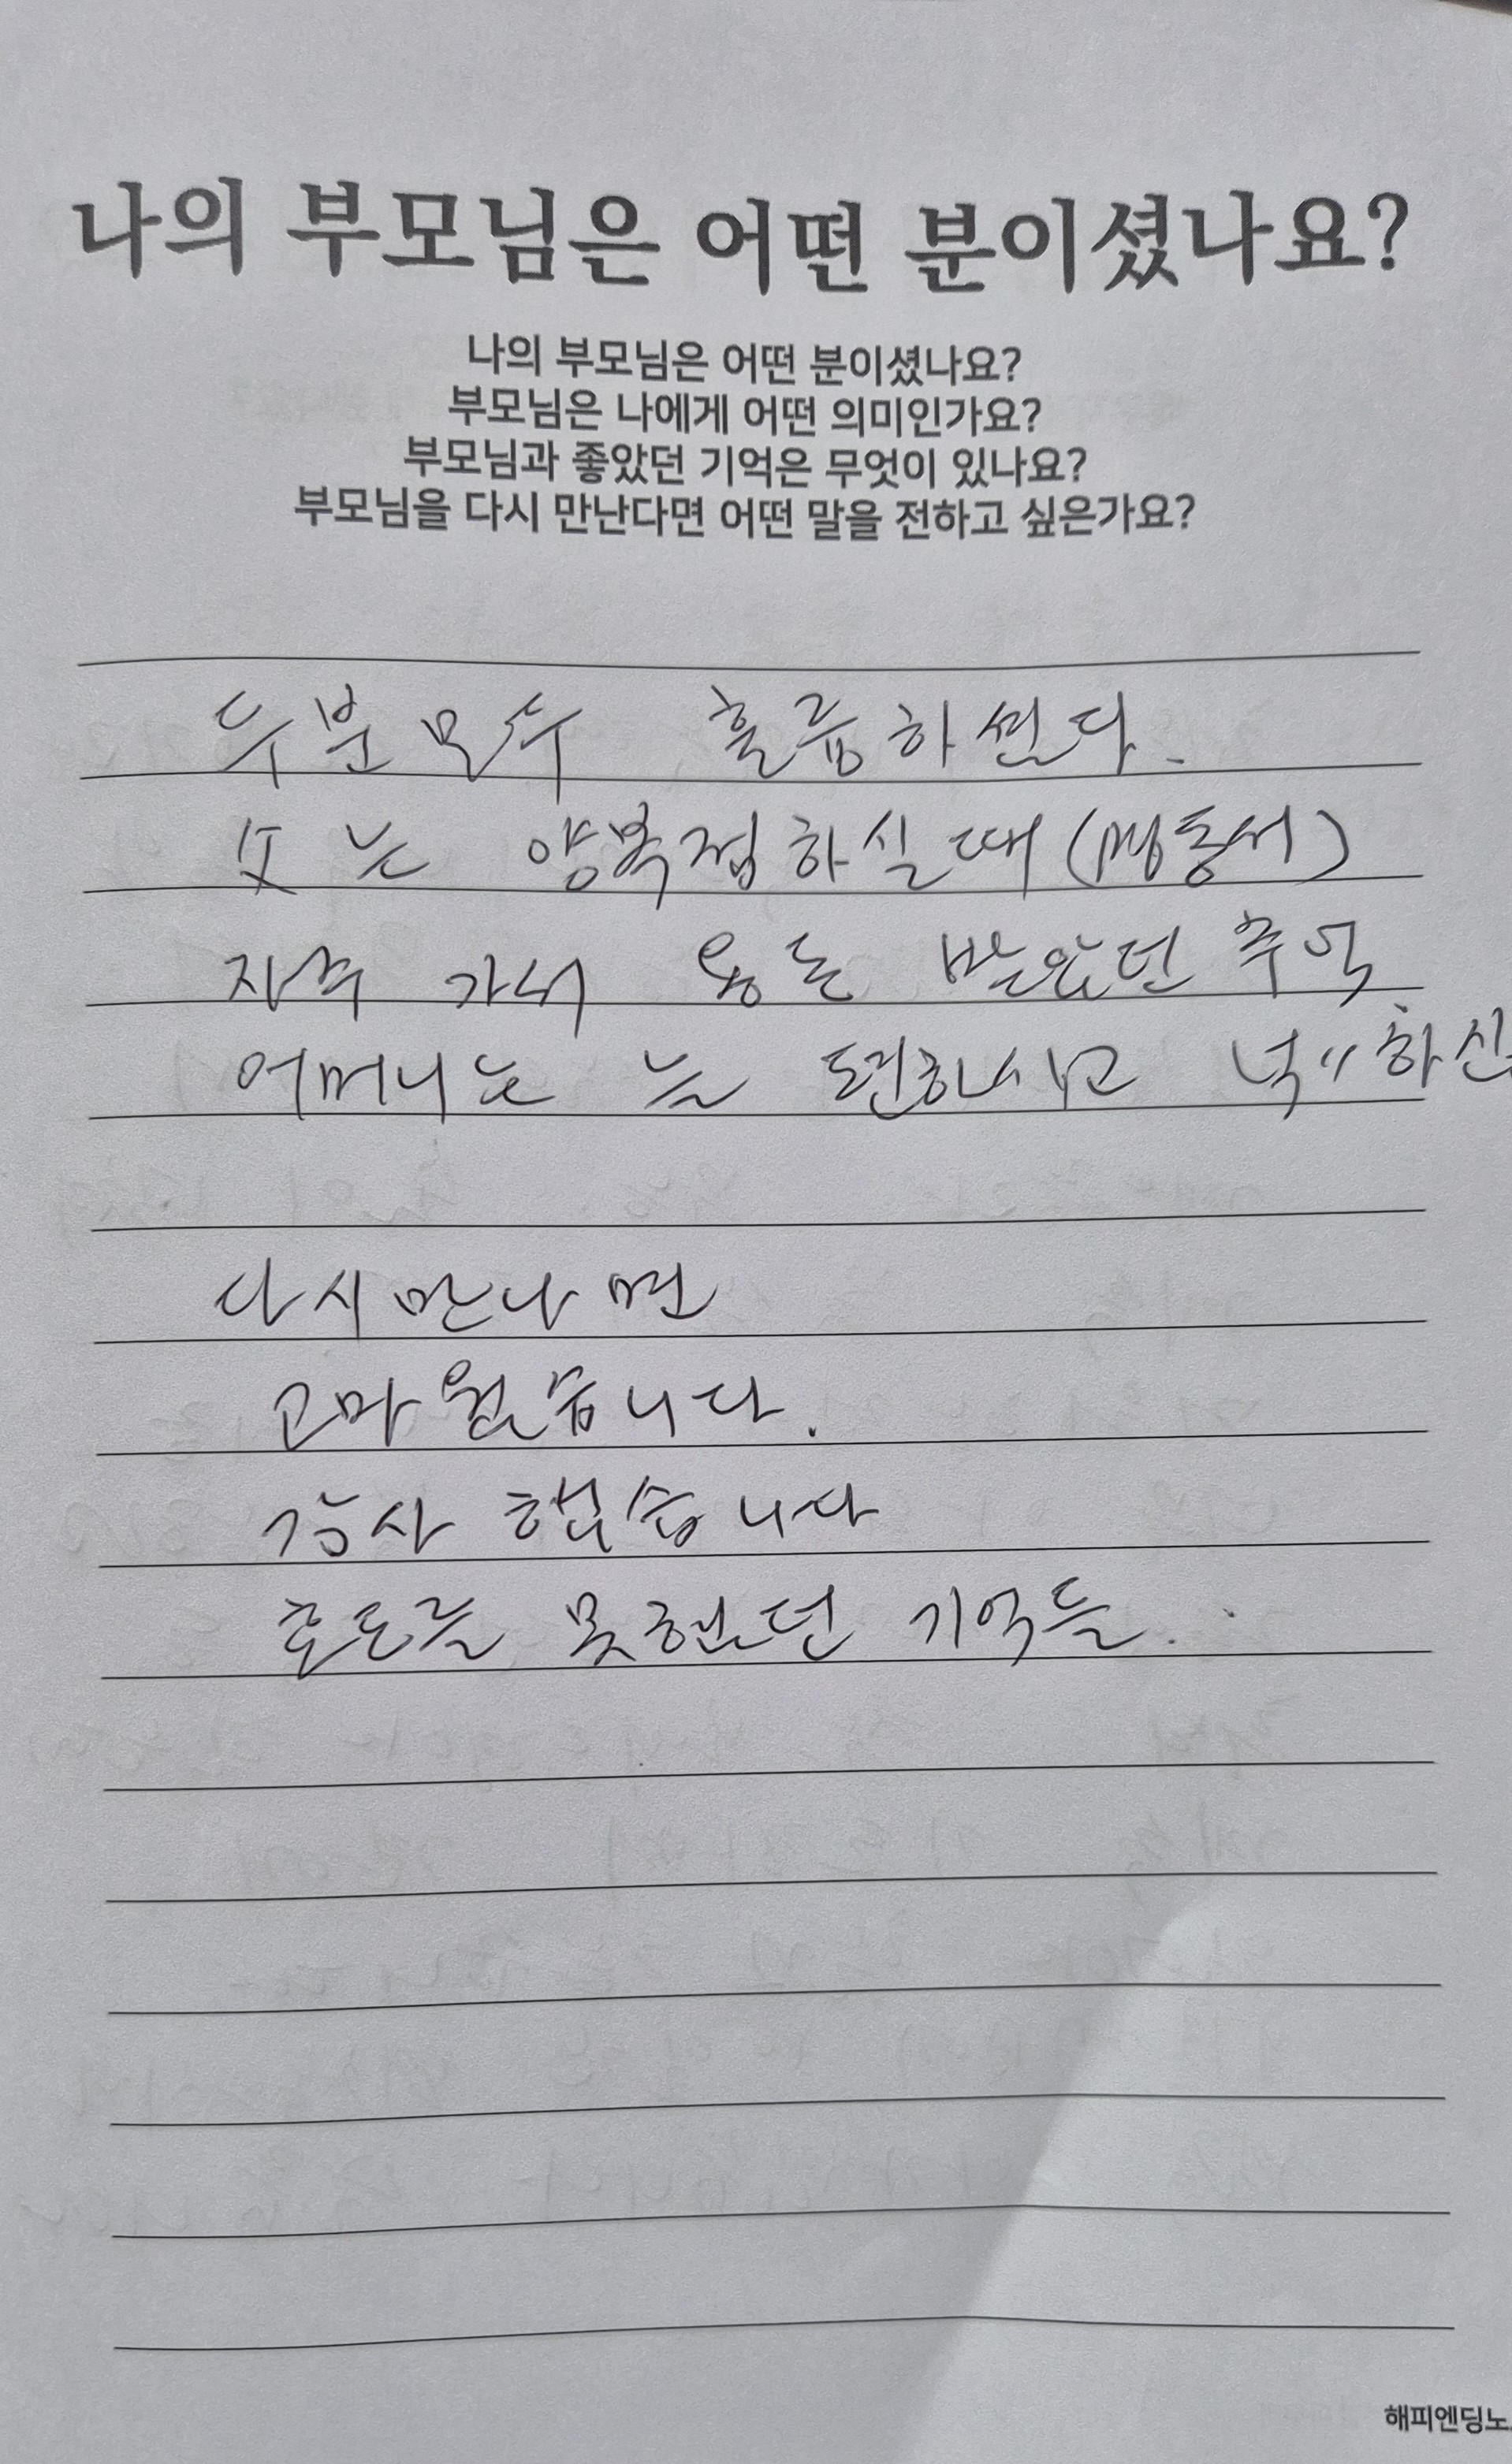 나의 부모님은 어떤 분이셨나요?
나의 부모님은 어떤 분이셨나요?
부모님은 나에게 어떤 의미인가요?
부모님과 좋았던 기억은 무엇이 있나요?
부모님을 다시 만난다면 어떤 말을 전하고 싶은가요?
두분모두 훌륭하셨다.
父는 양복점하실때(명동서)
자주 가서 용돈 받았던 추억
어머니는 늘 편하시고 넉〃하신
다시만나면
고마웠습니다.
감사 했습니다
효도를 못했던 기억들.
해피엔딩노